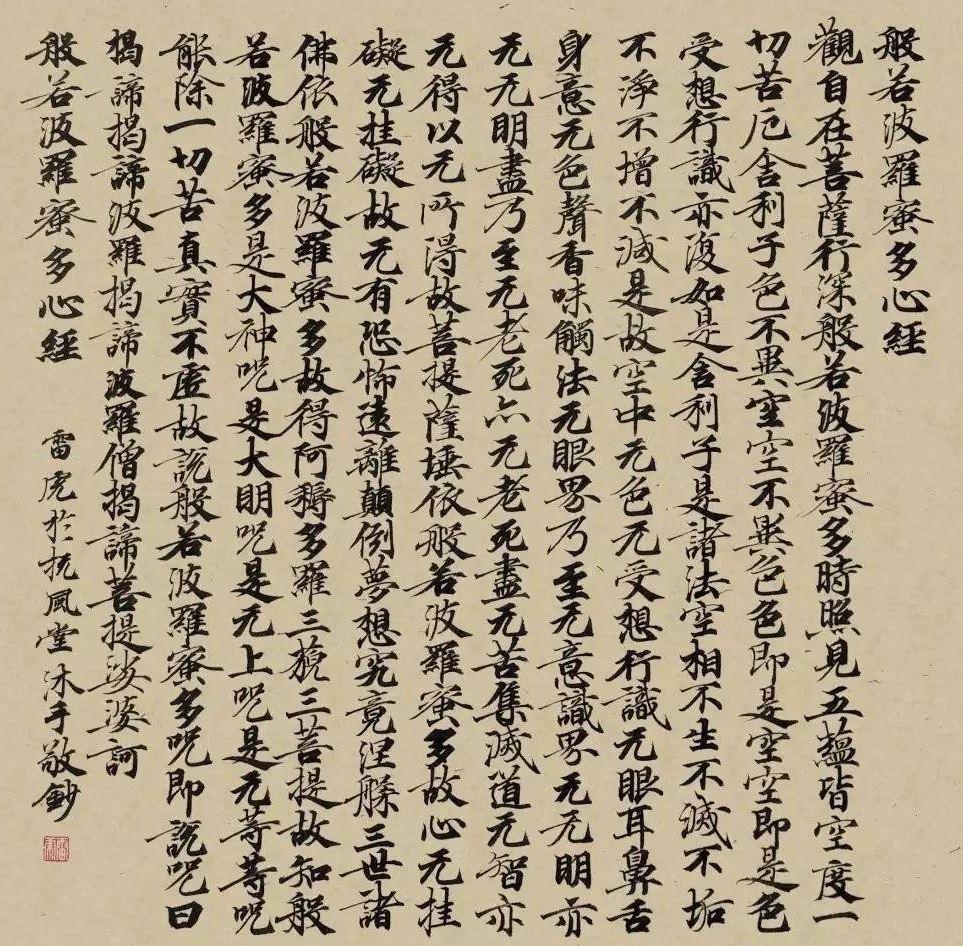 般若波羅蜜多心經
觀自在菩薩行深般若波羅蜜多時照見五蘊皆空度一
切苦厄舍利子色不異空空不異色色即是空空即是色
受想行識亦復如是舍利子是諸法空相不生不滅不垢
不淨不增不減是故空中无色无受想行識无眼耳鼻舌
身意无色聲香味觸法无眼界乃至无意識界无无明亦
无无明盡乃至无老死亦无老死盡无苦集滅道无智亦
无得以无所得故菩提薩埵依般若波羅蜜多故心无挂
礙无挂礙故无有恐怖遠離顛倒夢想究竟涅槃三世諸
佛依般若波羅蜜多故得阿耨多羅三藐三菩提故知般
若波羅蜜多是大神咒是大明咒是无上咒是无等等咒
能除一切苦真實不虛故説般若波羅蜜多咒即説咒曰
揭諦揭諦波羅揭諦波羅僧揭諦菩提娑婆訶
般若波羅蜜多心經
雷虎於抚風堂沐手敬鈔